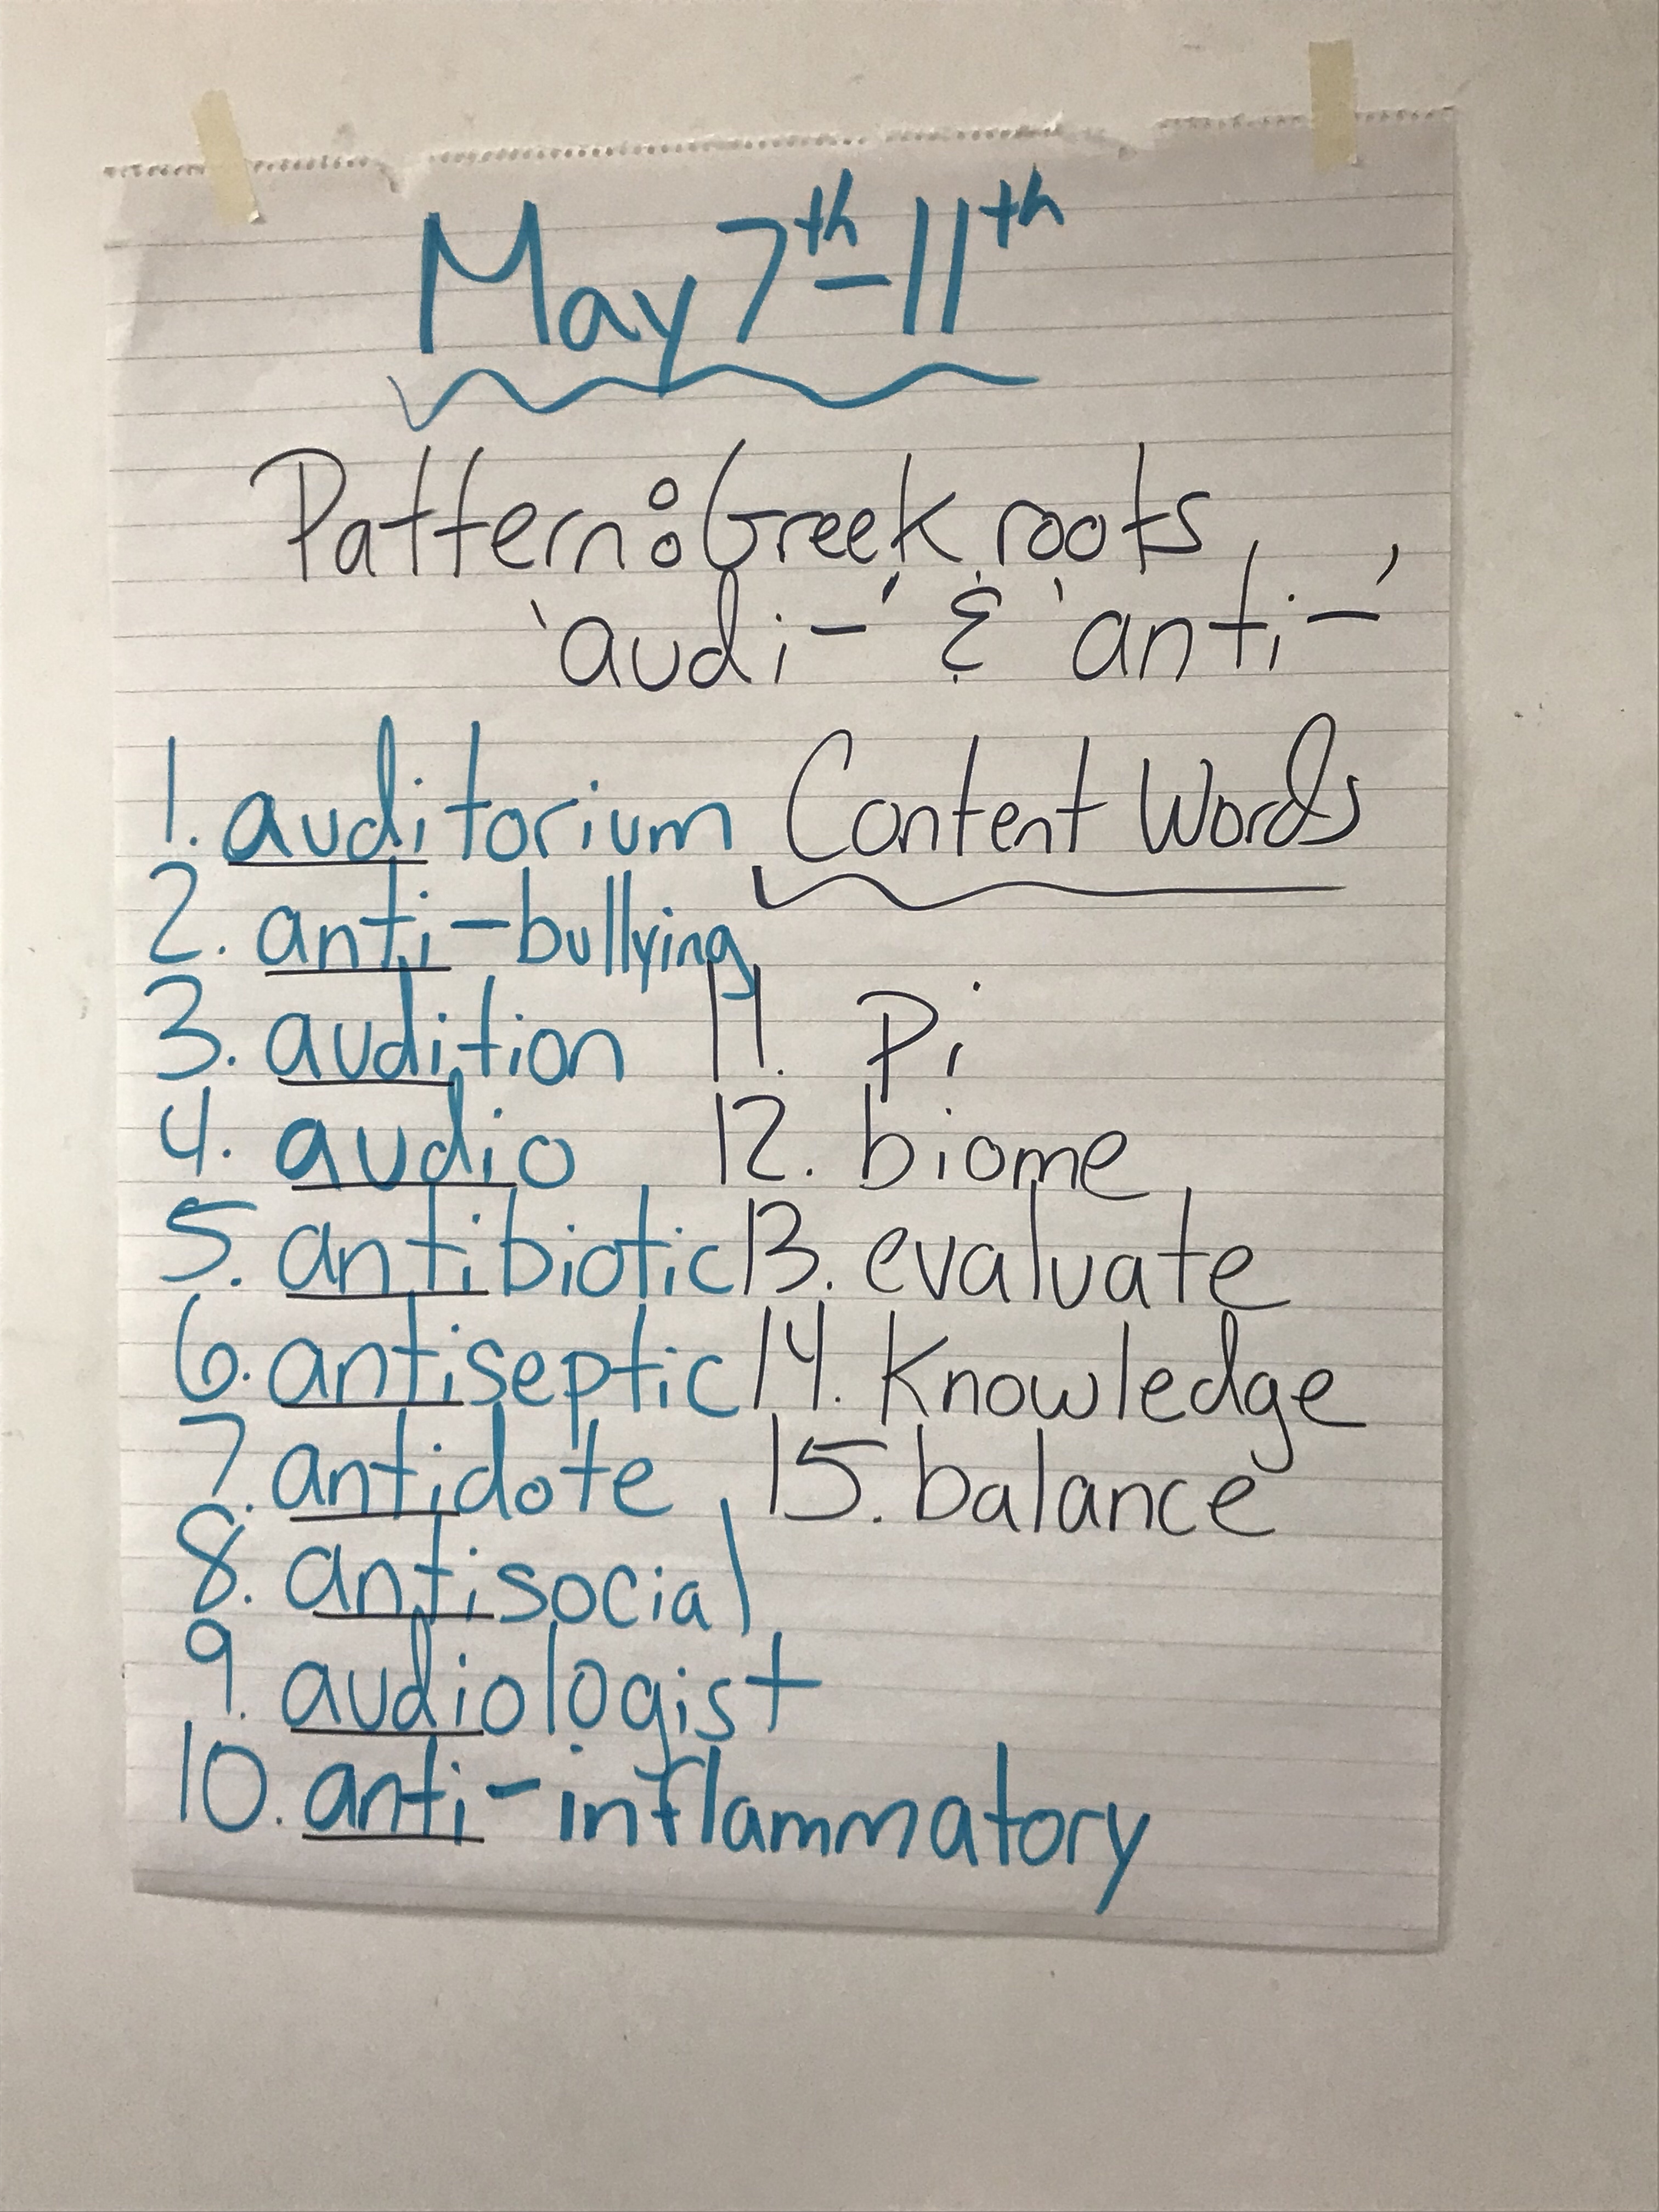 May 7th-11th
Pattern: Greek roots
'audi-' & 'anti-'
1. auditorium
2. anti-bullying
3. audition
4. audio
5. antibiotic
6. antiseptic
7. antidote
8. antisocial
9. audiologist
10. anti-inflammatory
Content Words
11. Pi
12. biome
13. evaluate
14. Knowledge
15. balance